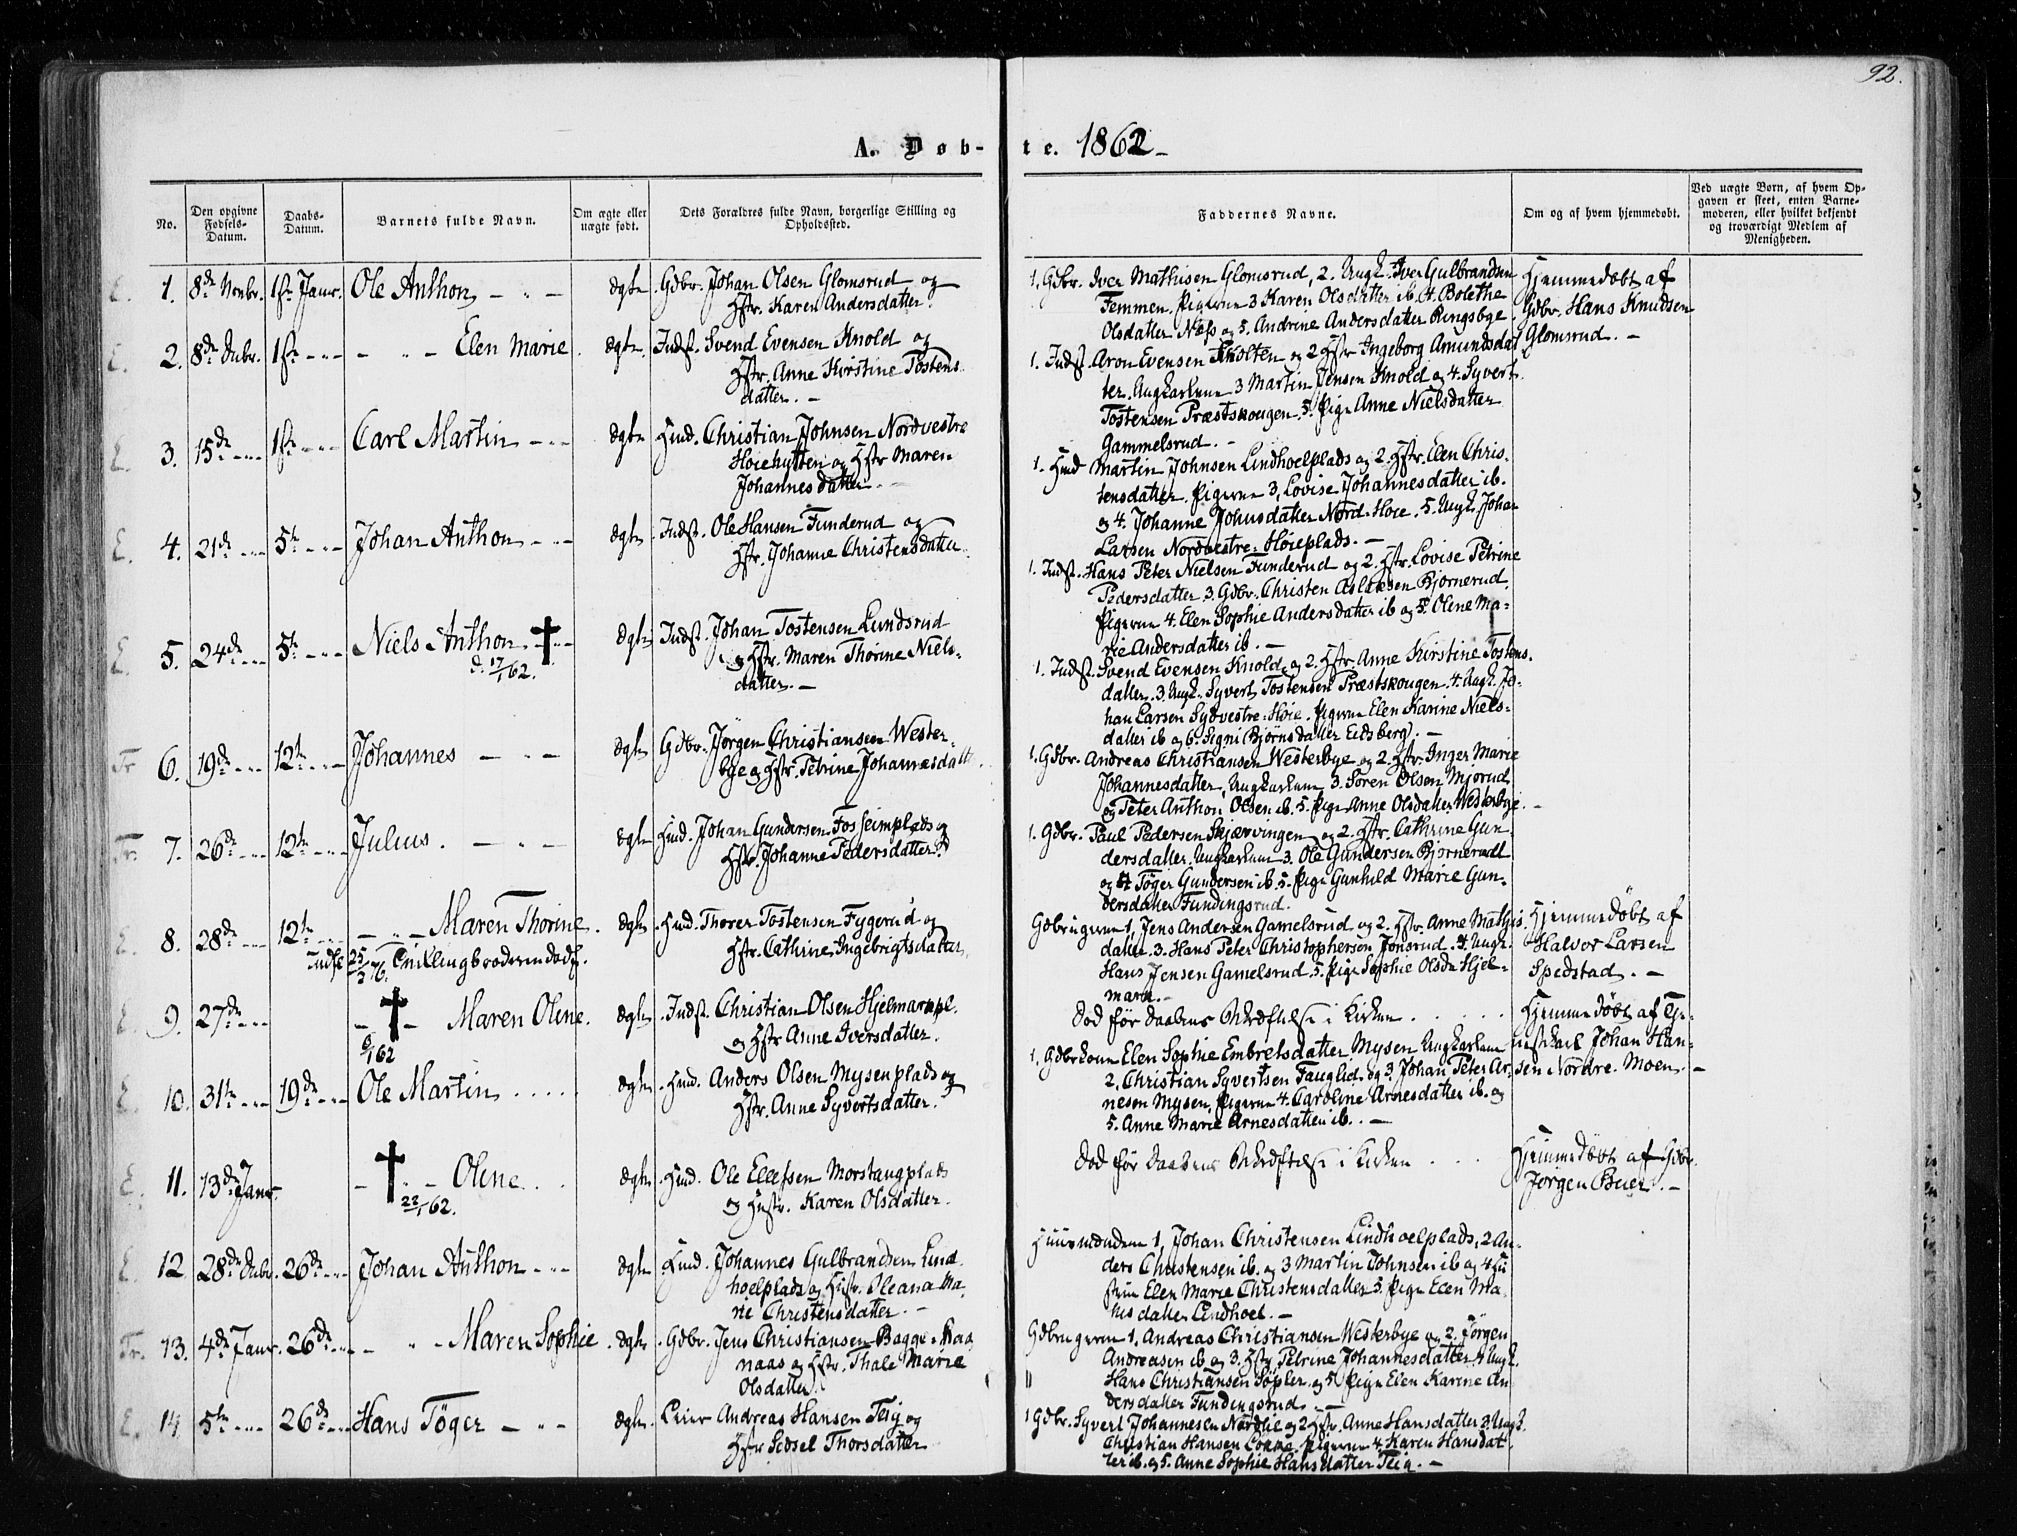 92.
A. Døb-te. 1862
No.
Den opgivne Fødsels-Datum.
Daabs-Datum.
Barnets fulde Navn.
Om ægte eller uægte født.
Dets Forældres fulde Navn, borgerlige Stilling og Opholdssted.
Faddernes Navne.
Om og af hvem hjemmedøbt.
Ved uægte Børn, af hvem Opgaven er skeet, enten Barnemoderen, eller hvilket bekjendt og troværdigt Medlem af Menigheden.
E. 1. 8de Novbr. 1ste Janr. Ole Anthon ægte Gdbr. Johan Olsen Glomsrud og
Hstr. Karen Andersdatter.
1. Gdbr. Iver Mathisen Glomsrud, 2. Ungk. Iver Gulbrandsen
Femmen. Pigerne 3 Karen Olsdatter ib. 4. Bolethe
Olsdatter Næss og 5. Andrine Andersdatter Ringsbye
Hjemmedöbt af
Gdbr. Hans Knudsen
Glomsrud. -
E. 2. 8de Decbr. 1ste Elen Marie ægte Indst. Svend Evensen Knold og
Hstr. Anne Kirstine Tostens-
datter. -
1. Indst. Aron Evensen Skolten og 2 Hstr. Ingeborg Amundsdat
ter. Ungkarlene 3 Martin Jensen Knold og 4. Syvert
Tostensen Præstskougen. 5. Pige Anne Nielsdatter
Gammelsrud. -
E. 3. 15de 1ste Carl Martin ægte Hmd. Christian Johnsen Nordvestre
Höiehytten og Hstr Maren
Johannesdatter.
1. Hmd Martin Johnsen Lindhoelplads og 2. Hstr. Elen Chris-
tensdatter. Pigerne 3. Lovise Johannesdatter ib.
og 4. Johanne Johnsdatter Nord-Hoie. 5. Ungk. Johan
Larsen Nordvestre-Höieplads. -
E. 4. 21de 5te Johan Anthon ægte Indst. Ole Hansen Funderud og
Hstr. Johanne Christensdatter
1. Indst. Hans Peter Nielsen Funderud og 2. Hstr. Lovise Petrine
Pedersdatter 3. Gdbr. Christen Aslaksen Bjørnerud.
Pigerne 4. Elen Sophie Andersdatter ib og 5. Olene Ma-
rie Andersdatter ib. -
E. 5. 24de 5te Niels Anthon ægte Indst. Johan Tostensen Lundsrud
d. 17/1 62.
og Hstr. Maren Thorine Niels-
datter. -
1. Indst. Svend Evensen Knold og 2. Hstr. Anne Kirstine Tostens-
datter. 3. Ungk. Syvert Tostensen Præstskougen. 4. Ungk. Jo-
han Larsen Sydvestre-Höie. Pigerne Elen Karine Niels-
datter ib og 6. Signi Bjørnsdatter Eidsberg. -
Fr 6. 19de 12te Johannes ægte Gdbr. Jørgen Christiansen Wester-
bye og Hstr. Petrine Johannesdatt.
1. Gdbr. Andreas Christiansen Westerbye og 2. Hstr. Inger Marie
Johannesdatter, Ungkarlene 3. Sören Olsen Mjørud
og Peter Anthon Olsen ib. 5. Pige Anne Olsdatter Westerbye. -
Fr. 7. 26de 12te Julius. ægte Hmd. Johan Gundersen Fosseimplads og
Hstr. Johanne Pedersdatter.
1. Gdbr. Paul Pedersen Skjærvingen og 2. Hstr. Cathrine Gun
dersdatter. Ungkarlene 3. Ole Gundersen Bjørnerudt
og 4 Töger Gundersen ib. 5. Pige Gunhild Marie Gun-
dersdatter Fundingsrud.
E. 8. 28de 12te Maren Thorine. ægte Hmd. Thorer Tostensen Fygerud og
Indst 25/3 76. Tvillingbroderen dødf.
Hstr. Cathrine Ingebrigtsdatter.
Gdbrugerne 1, Jens Andersen Gamelsrud og 2. Hstr. Anne Mathis
datter. 3. Hans Peter Christophersen Jonsrud. 4. Ungk.
Hans Jensen Gamelsrud. 5. Pige Sophie Olsda Hjel-
mark. -
Hjemmedöbt af
Halvor Larsen
Spedstad. -
E. 9. 27de Maren Olene. ægte Indst. Christian Olsen Hjelmarkpl.
6/1 62
og Hstr Anne Iversdatter.
Död för Daabens Bekræftelse i Kirken
Hjemmedöbt af Tje-
nestekarl Johan Han-
sen Nordre-Moen. -
E. 10. 31te 19de Ole Martin ægte Hmd. Anders Olsen Mysenplads og
Hstr. Anne Syvertsdatter.
1. Gdbrkone Elen Sophie Embretsdatter Mysen Ungkarlene
2. Christian Syvertsen Fauglid og 3. Johan Peter Ar-
nesen Mysen. Pigerne 4. Caroline Arnesdatter ib. og
5. Anne Marie Arnesdatter ib. -
E. 11. 13de Janr. Olene ægte Hmd. Ole Ellefsen Morstangplads
22/1 62.
og Hustr. Karen Olsdatter.
Död för Daabens Bekræftelse i Kirken
Hjemmedöbt af Gdbr.
Jörgen Buer. -
E. 12 28de Decbr. 26de Johan Anthon ægte Hmd. Johannes Gulbrandsen Lind-
hoelplads og Hustr. Oleana Ma-
rie Christensdatter. -
Huusmændene 1, Johan Christensen Lindhoelplads, 2 An-
ders Christensen ib. og 3 Martin Johnsen ib og 4 Hu
strue Elen Marie Christensdatter 5. Pige Elen Ma
thisdatter Lindhoel. -
Fr. 13. 4de Janr. 26de Maren Sophie. ægte Gdbr. Jens Christiansen Bagge-Haa
naas og Hstr. Thale Marie
Olsdatter.
Gdbrugerne 1. Andreas Christiansen Westerbye og 2. Jörgen
Andreasen ib og 3. Hstr. Petrine Johannesdatter 4 Ungk.
Hans Christiansen Söpler og 5. Pige Elen Karine An
dersdatter Fundingsrud.
E. 14 5te 26de Hans Töger ægte Leier Andreas Hansen Teig og
Hstr Sidsel Thorsdatter
1 Gdbr. Syvert Johannesen Nordlie og 2 Hstr. Anne Hansdatter 3. Ungk.
Christian Hansen Lokka. Pigerne 4 Karen Hansdat
ter ib. og 5. Anne Sophie Hansdatter Teig. -